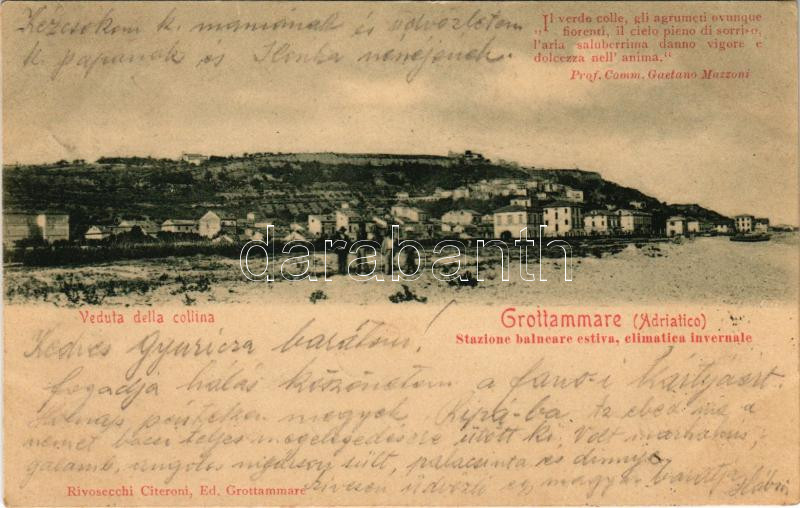 Kézcsokom k. mamának és üdvözletem
k. papának és Ilonka nénnjének.
„Il verde colle, gli agrumeti ovunque
fiorenti, il cielo pieno di sorriso,
l'aria saluberrima danno vigore e
dolcezza nell' anima."
Prof. Comm. Gaetano Mazzoni
darabanth
Veduta della collina
Grottammare (Adriatico)
Stazione balneare estiva, climatica invernale
Kedves Gyuricza barátom!
fogadja hálás köszönetem a fano-i kártyáért.
Holnap pénteken megyek Ripá-ba. Az ebéd ma a
német bácsi teljes megelégedésére ütött ki. Volt marhahús,
galamb, angolos sült, palacsinta és dinnye.
szívesen üdvözli egy magyar barátja
Rivosecchi Citeroni, Ed. Grottammare